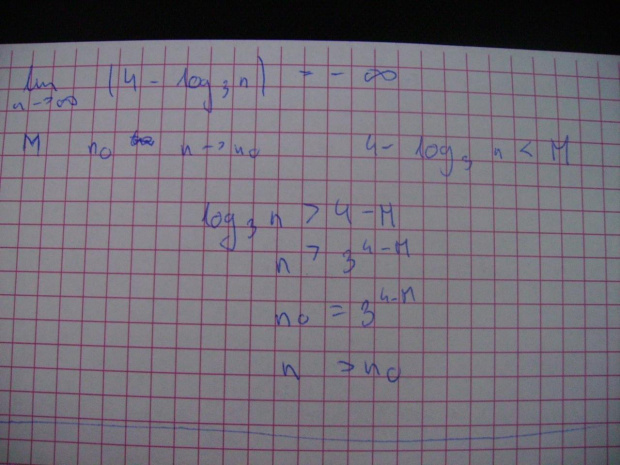 lim (4 - log₃ n) = - ∞
n→∞
M n₀ n → n₀ 4 - log₃ n < M
log₃ n > 4 - M
n > 3^(4-M)
n₀ = 3^(4-M)
n > n₀